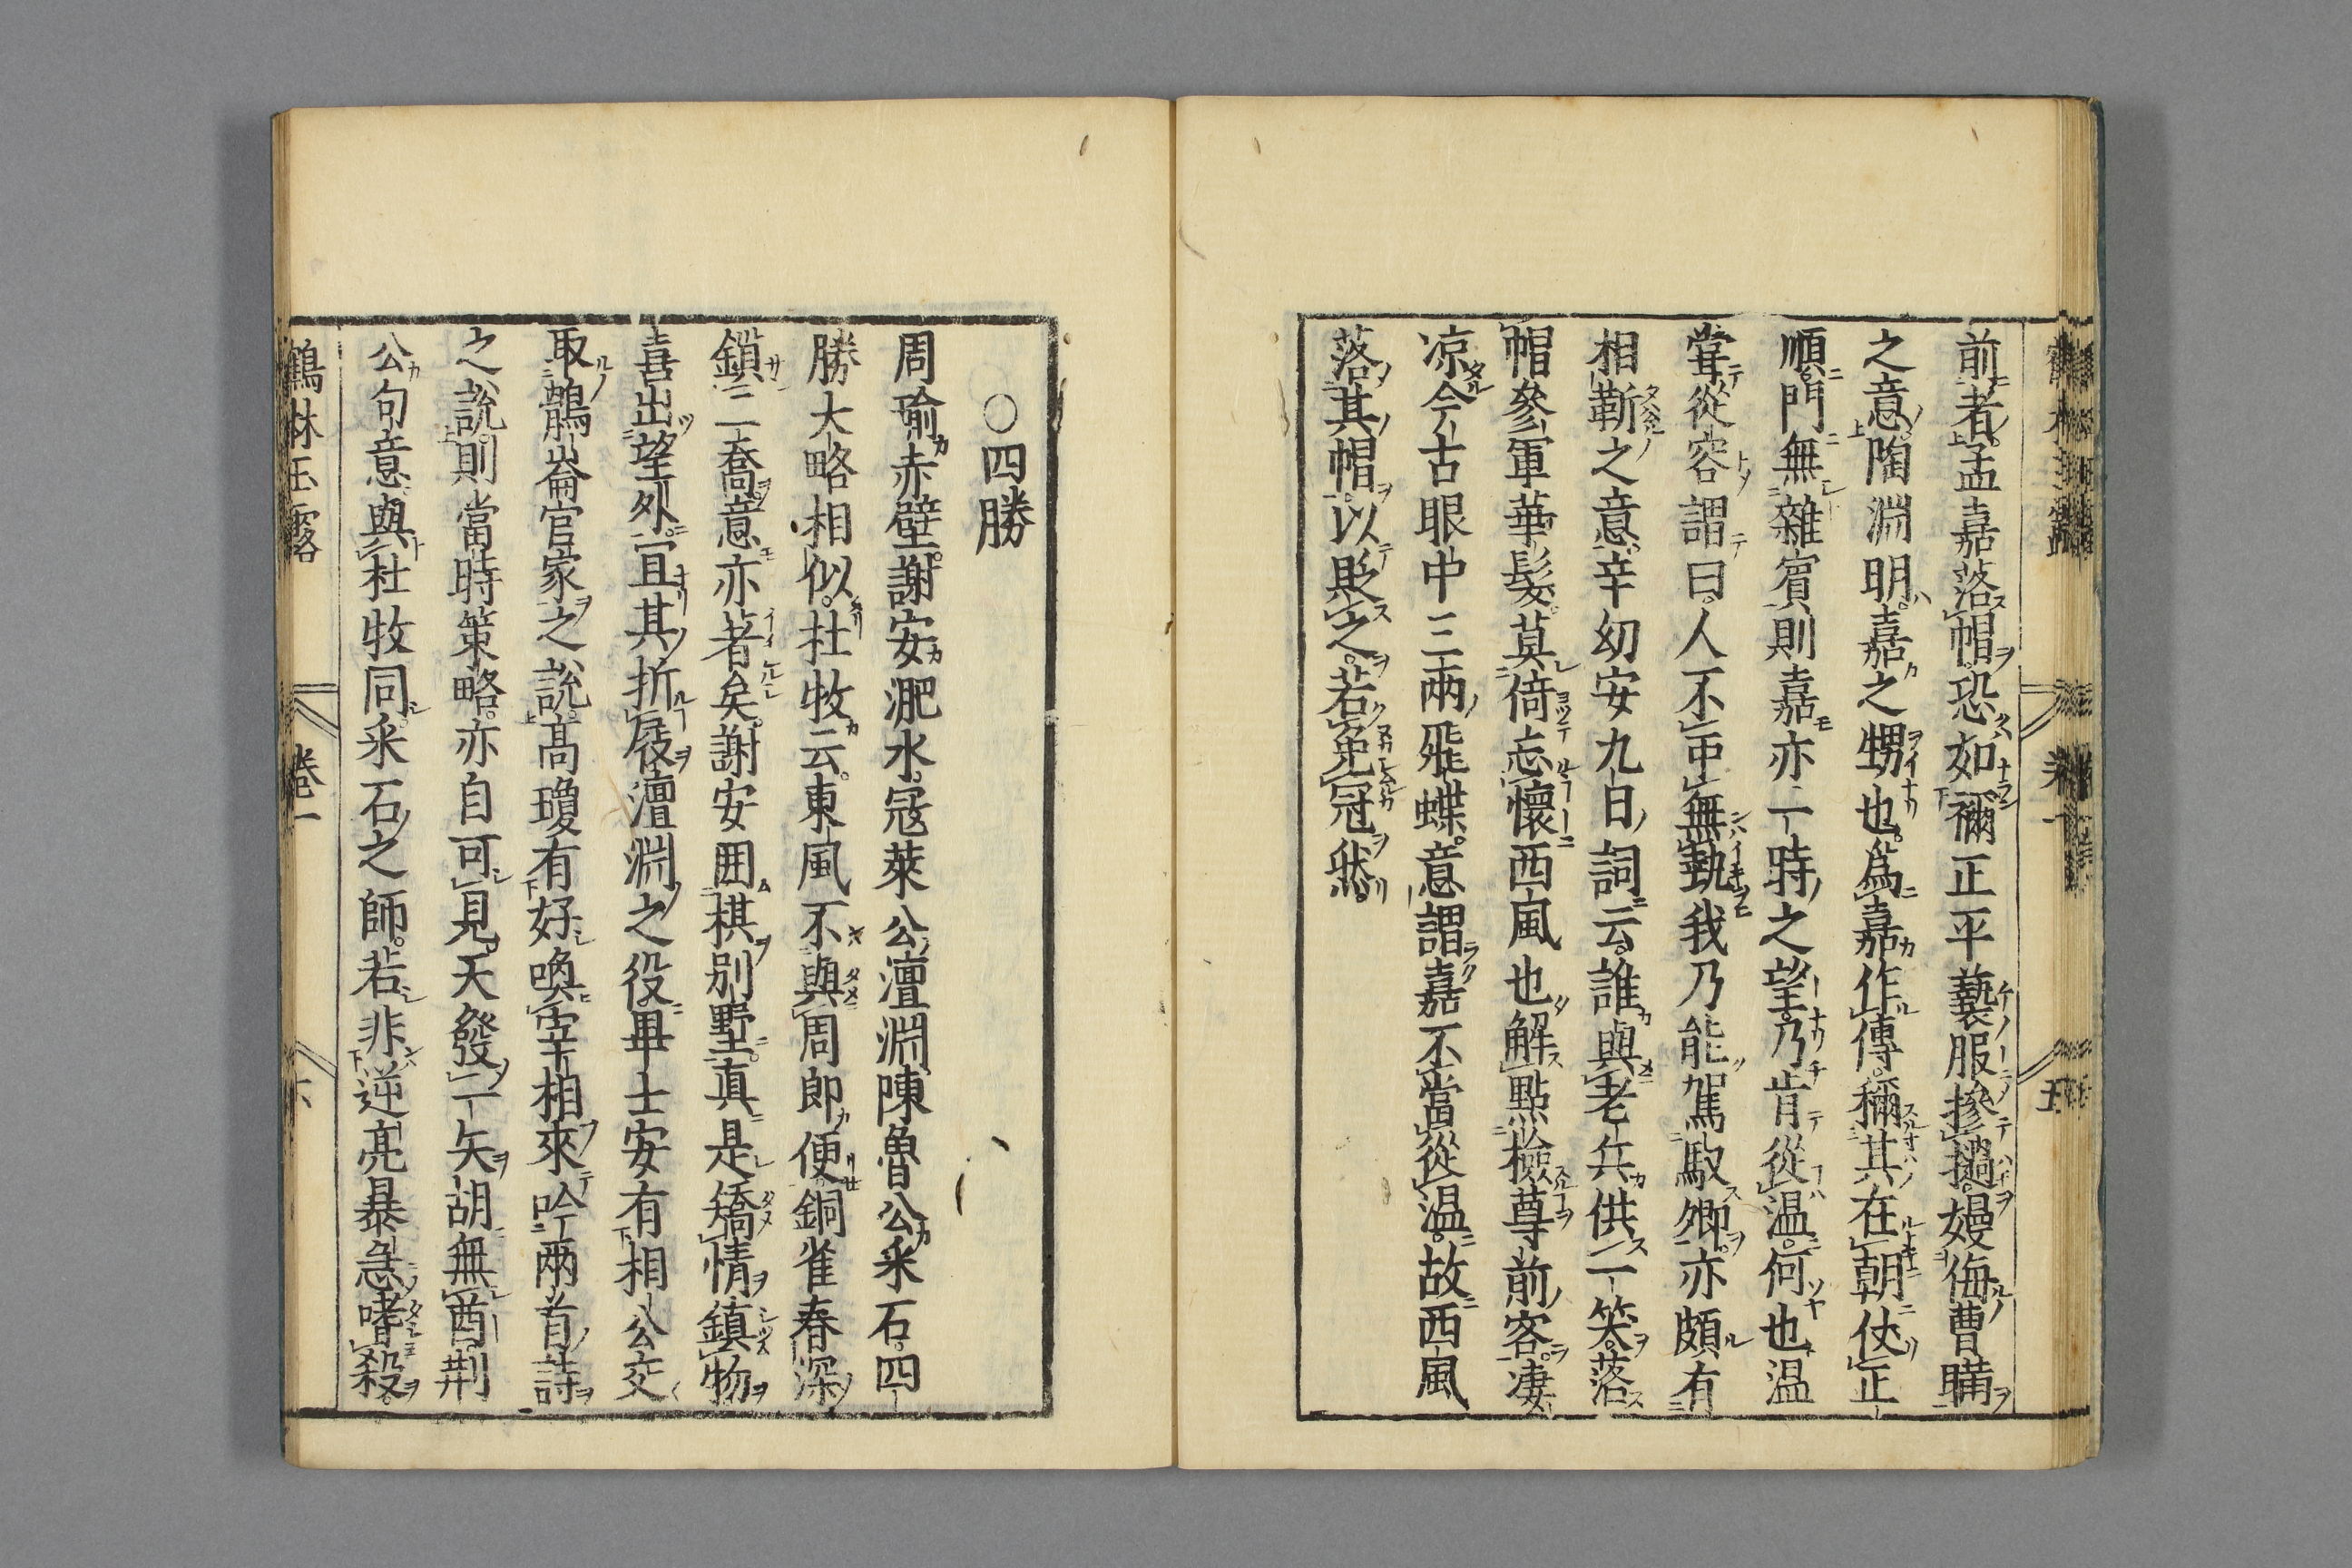 前者孟嘉落帽恐如禰正平褻服摻撾嫚侮曹瞞
之意陶淵明嘉之甥也爲嘉作傳稱其在朝仗正
順門無雜賓則嘉亦一時之望乃肯從温何也温
嘗從容謂曰人不可無勢我乃能駕馭卿亦頗有
相靳之意辛幼安九日詞云誰與老兵供一笑落
帽參軍華髮莫倚忘懷西風也解點檢尊前客凄
凉今古眼中三兩飛蝶意謂嘉不當從温故西風
落其帽以貶之若免冠然
○四勝
周瑜赤壁謝安淝水冦萊公澶淵陳魯公采石四
勝大略相似杜牧云東風不與周郎便銅雀春深
鎖二喬意亦著矣謝安囲棋別墅真是矯情鎮物
喜出望外宜其折屐澶淵之役畢士安有相公交
取鶻崙官家之説高瓊有好喚宰相來吟兩首詩
之說則當時策略亦自可見天發一矢胡無酋荆
公句意與杜牧同采石之師若非逆亮暴急嗜殺
鶴林玉露 卷一 六